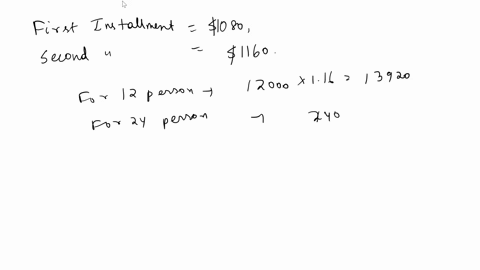 First Installment = $1080,
Second " = $1160.
For 12 person → 12000 × 1.16 = 13920
For 24 person → 240